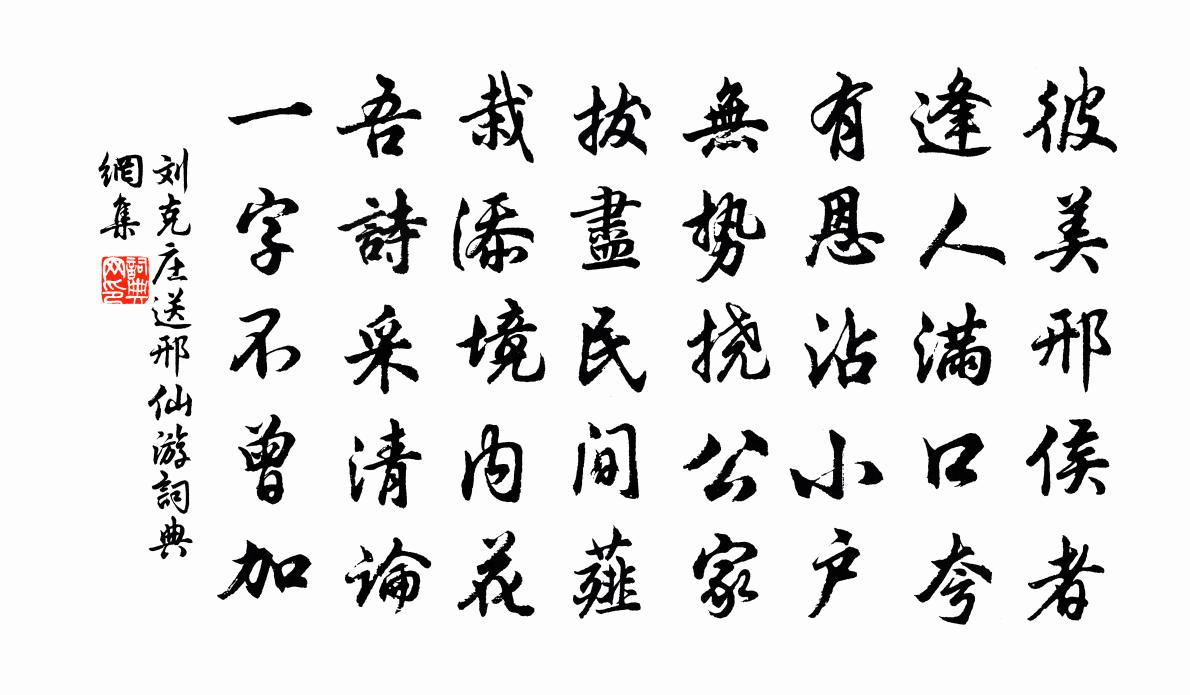 彼美邢侯者
逢人滿口夸
有恩沾小户
無勢挠公家
拔盡民间薤
栽添境内花
吾詩采清論
一字不曾加
刘克庄送邢仙游詞典
網集
詞典
网印